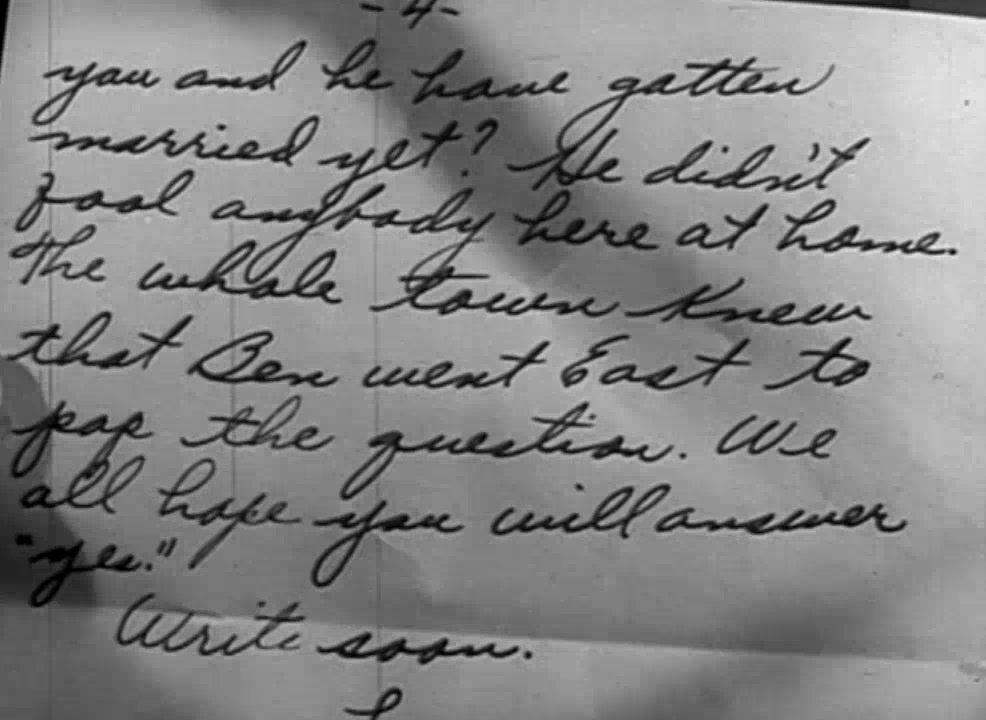 -4-
you and he have gotten
married yet? He didn't
fool anybody here at home.
The whole town knew
that Ben went East to
pop the question. We
all hope you will answer
"yes."
Write soon.